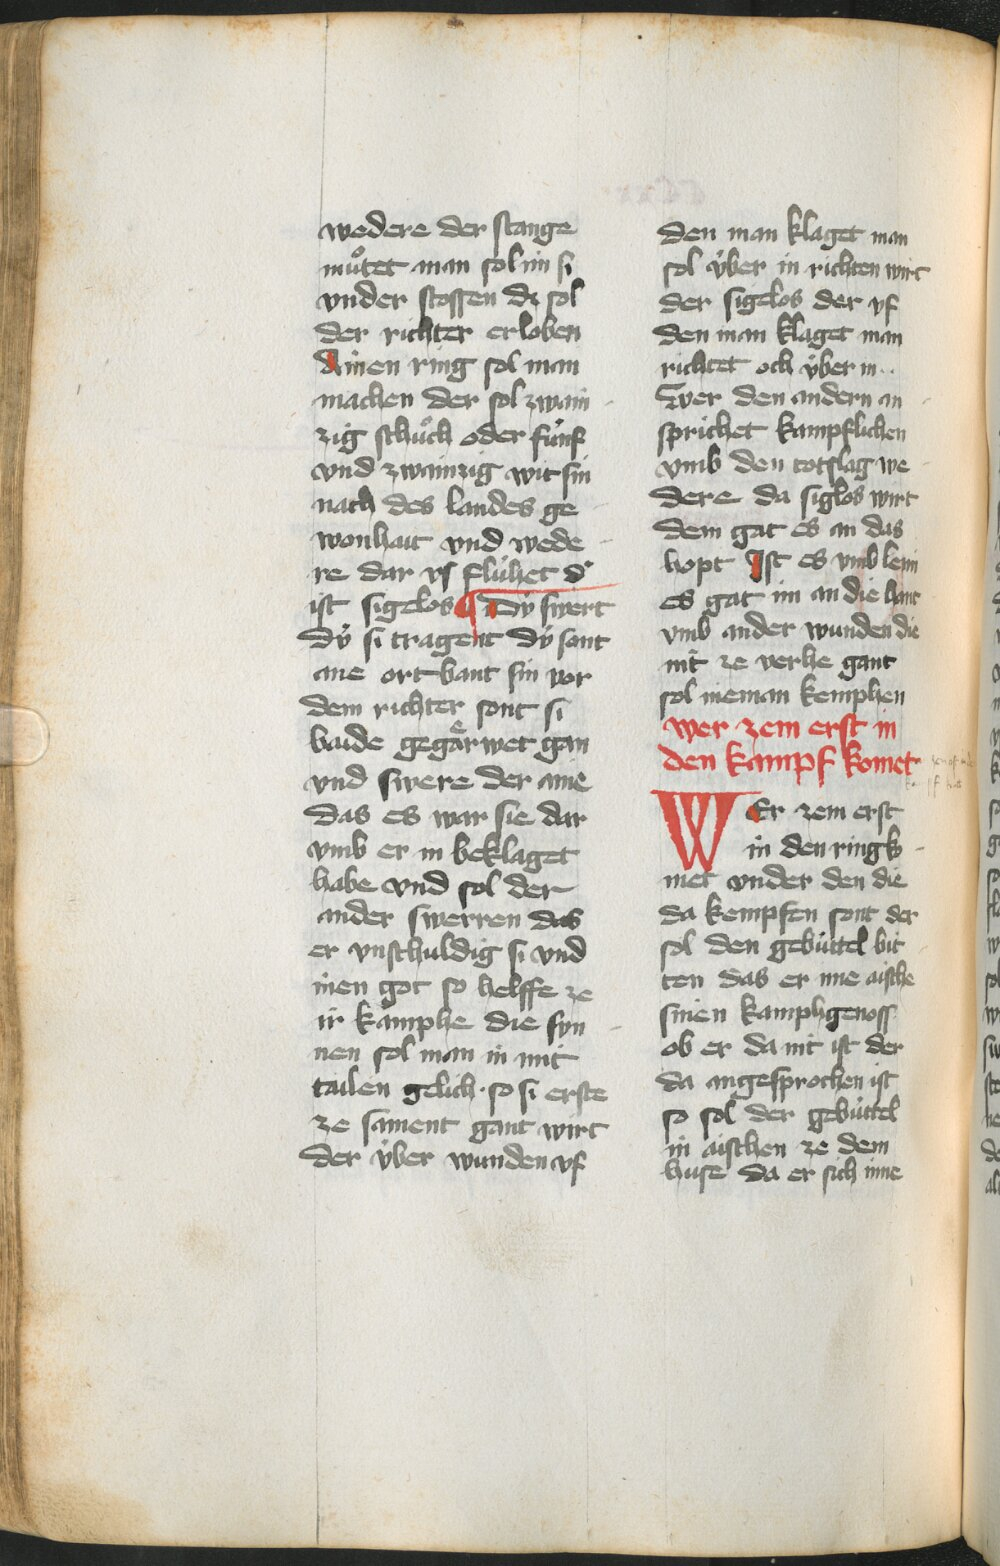 wedere der stange
muͦtet man sol im si
vnder stossen dz sol
der richter erloben
Ainen ring sol man
machen der sol zwain
zig schuͦch oder fúnf
vnd zwainzig wit sin
nach des landes ge
wonhait vnd wede
re dar vs flúhet dͬ
ist sigelos ¶ Dÿ swert
dÿ si tragent dÿ sont
ane ort bant sin vor
dem richter sont si
baide gegaͤrwet gan
vnd swere der aine
das es war sie dar
vmb er in beklaget
habe vnd sol der
ander swerren das
er vnschuldig si vnd
inen got so helffe ze
ir kamphe die syn
nen sol man in mit
tailen gelich · so si erste
ze sament gant wirt
der ÿber wunden vf
den man klaget man
sol ÿber in richten wirt
der sigelos der vf
den man klaget man
richtet och ÿber in
Swer den andern an
sprichet kampflichen
vmb den totslag we
dere da siglos wirt
dem gat es an das
hopt Ist es vmb lem
es gat im an die hant
vmb ander wunden die
nit ze verhe gant
sol nieman kemphen
wer zem erst in
den kampf komet
WEr zem erst
in den ring ko
met vnder den die
da kempfen sont der
sol den gebúttel bit
ten das er ime aische
sinen kamphgenoss
ob er da nit ist der
da angesprochen ist
so sol der gebúttel
in aischen ze dem
huse da er sich inne